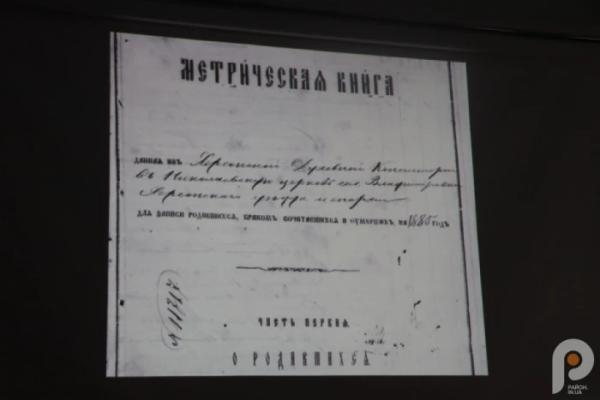 МЕТРИЧЕСКАЯ КНИГА
ДАННАЯ ИЗЪ Херсонской Духовной Консисторіи
въ Николаевскую церковь с. Владимировки
Херсонского уѣзда
ДЛЯ ЗАПИСИ РОДИВШИХСЯ, БРАКОМЪ СОЧЕТАВШИХСЯ И УМЕРШИХЪ, НА 1885 ГОДЪ
ЧАСТЬ ПЕРВАЯ
О РОДИВШИХСЯ
РАЙОН.
IN.UA